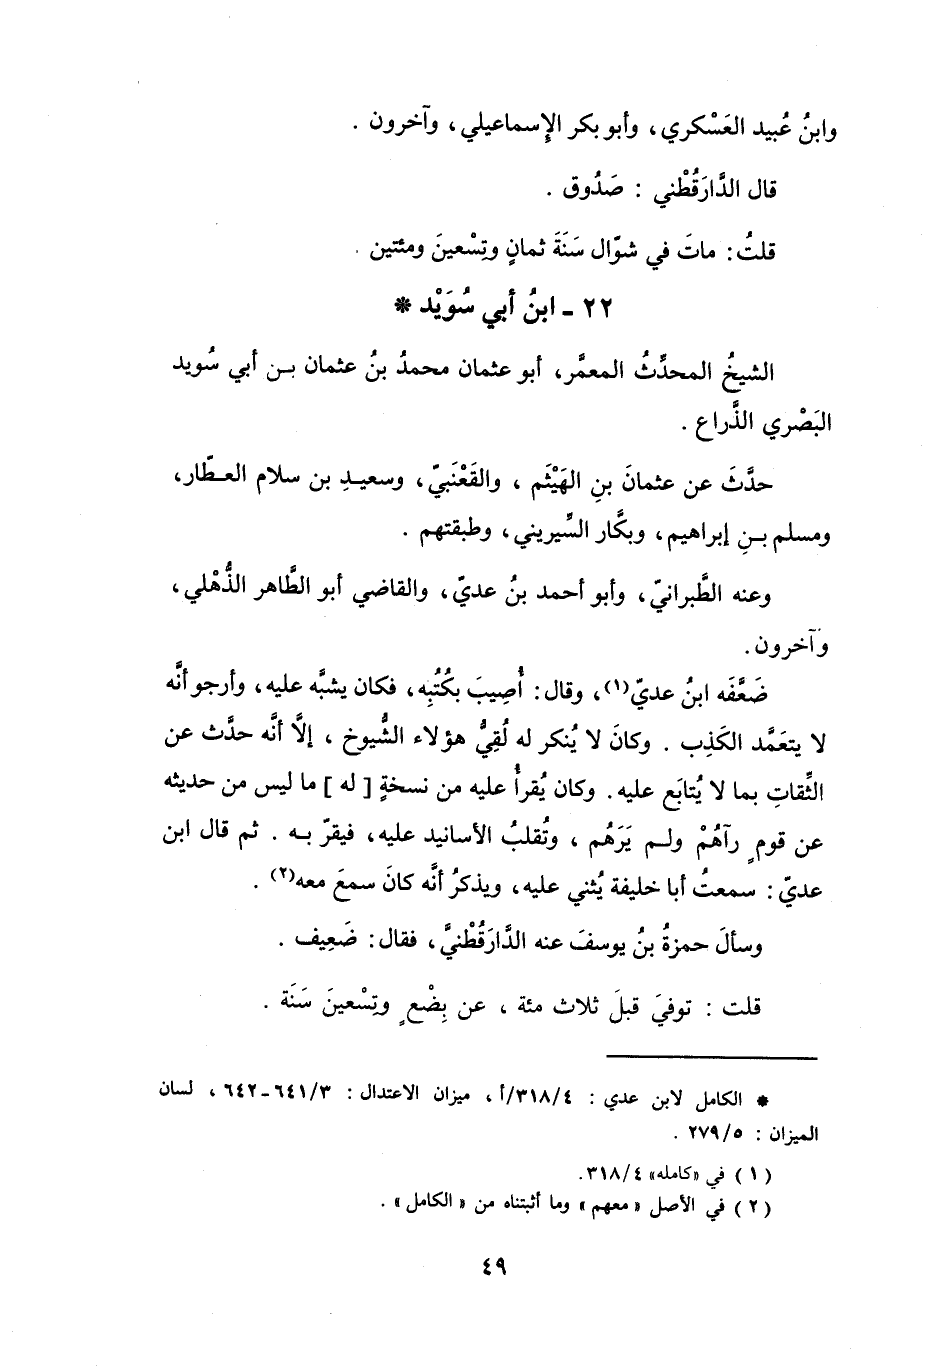 وابنُ عُبيد العَسْكري، وأبو بكر الإسماعيلي، وآخرون .
قال الدَّارَقُطْني : صَدُوق .
قلتُ: ماتَ في شوّال سَنَةَ ثمانٍ وتِسْعينَ ومئتين .
٢٢ - ابنُ أبي سُوَيْد *
الشيخُ المحدِّثُ المعمَّر، أبو عثمان محمدُ بنُ عثمان بـن أبي سُويد
البَصْري الذَّراع .
حدَّثَ عن عثمانَ بنِ الهَيْثَم ، والقَعْنَبيّ، وسعيـدِ بن سلام العـطّار،
ومسلم بـنِ إبراهيم، وبكَّار السِّيريني، وطبقتهم .
وعنه الطَّبرانيّ، وأبو أحمد بنُ عديّ، والقاضي أبو الطَّاهر الذُّهْلي،
وَآخرون.
ضَعَّفَه ابنُ عديّ(١)، وقال: أُصِيبَ بكُتُبِه، فكان يشبَّه عليه، وأرجو أنَّه
لا يتعَمَّد الكَذِب . وكانَ لا يُنكر له لُقِيُّ هؤلاء الشُّيوخ ، إلَّا أنَّه حدَّث عن
الثِّقاتِ بما لا يُتابَع عليه. وكان يُقرأُ عليه من نسخةٍ [ له ] ما ليس من حديثه
عن قومٍ رآهُمْ ولـم يَرَهُم ، وتُقلبُ الأسانيد عليه، فيقرّ بـه . ثم قال ابن
عديّ: سمعتُ أبا خليفة يُثني عليه، ويذكرُ أنَّه كانَ سمعَ معه(٢) .
وسألَ حمزةُ بنُ يوسفَ عنه الدَّارَقُطْنيَّ، فقال: ضَعِيف .
قلت : توفيَ قبلَ ثلاث مئة ، عن بِضْعٍ وتِسْعينَ سَنَة .
* الكامل لابن عدي : ٣١٨/٤/أ ، ميزان الاعتدال : ٦٤١/٣-٦٤٢ ، لسان
الميزان : ٢٧٩/٥ .
( ١ ) في «كامله» ٣١٨/٤.
( ٢ ) في الأصل «معهم» وما أثبتناه من «الكامل» .
٤٩